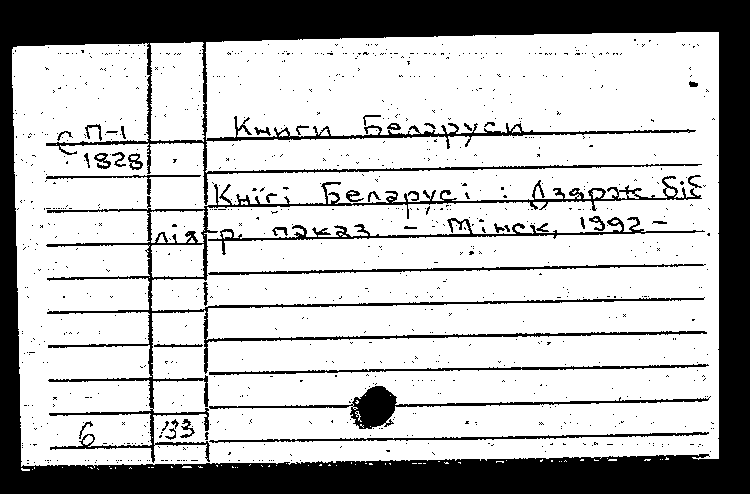 С П-1
1828
Книги Беларуси.
Кнігі Беларусі : Дзярж. біб
ліягр. паказ. - Мінск, 1992 -
6 133